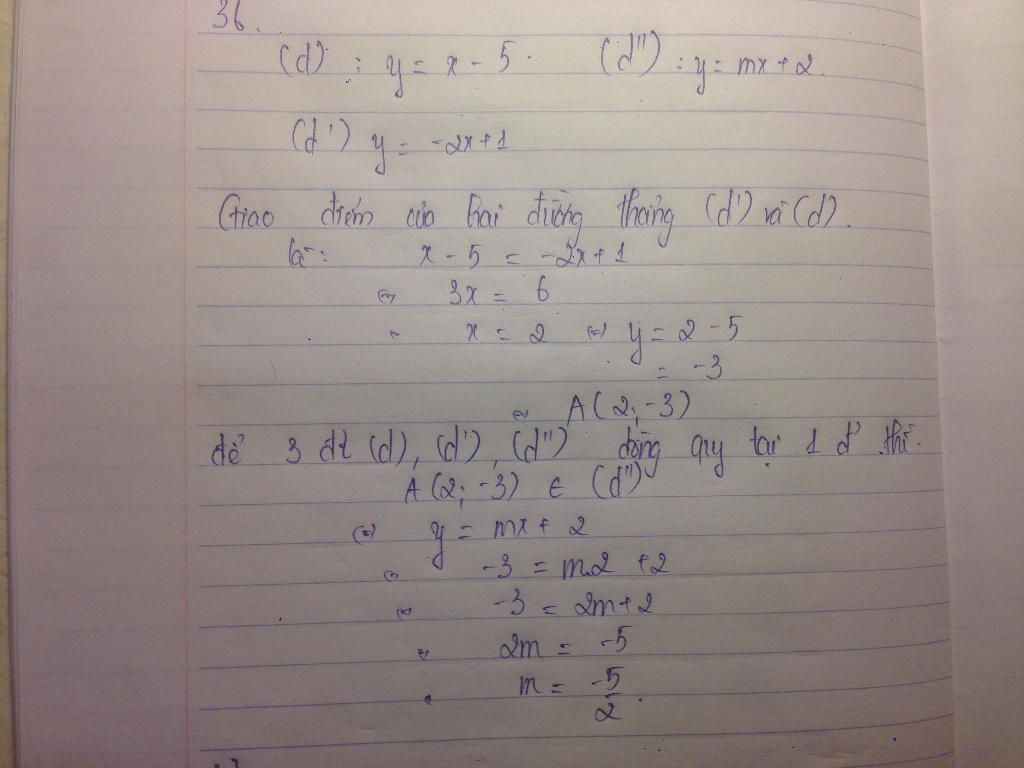 36.
(d) : y = x - 5. (d") : y = mx + 2.
(d') y = -2x + 1
Giao điểm của hai đường thẳng (d') và (d).
là: x - 5 = -2x + 1
⇔ 3x = 6
⇔ x = 2 ⇔ y = 2 - 5
= -3
⇔ A(2; -3)
để 3 đt (d), (d'), (d") đồng quy tại 1 đ' thì.
A(2; -3) ∈ (d")
⇔ y = mx + 2
⇔ -3 = m.2 + 2
⇔ -3 = 2m + 2
⇔ 2m = -5
⇔ m = -5/2.